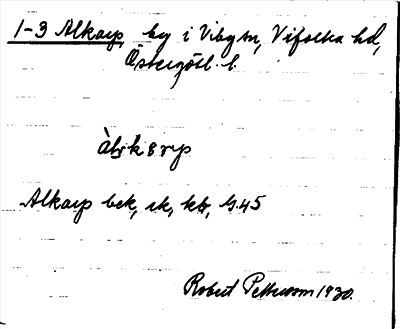 1-3 Alkarp, by i Viby sn, Vifolka hd,
Östergötl. l.
Àlrkarp
Alkarp bek, sk, kb, G.45
Robert Pettersson 1930.